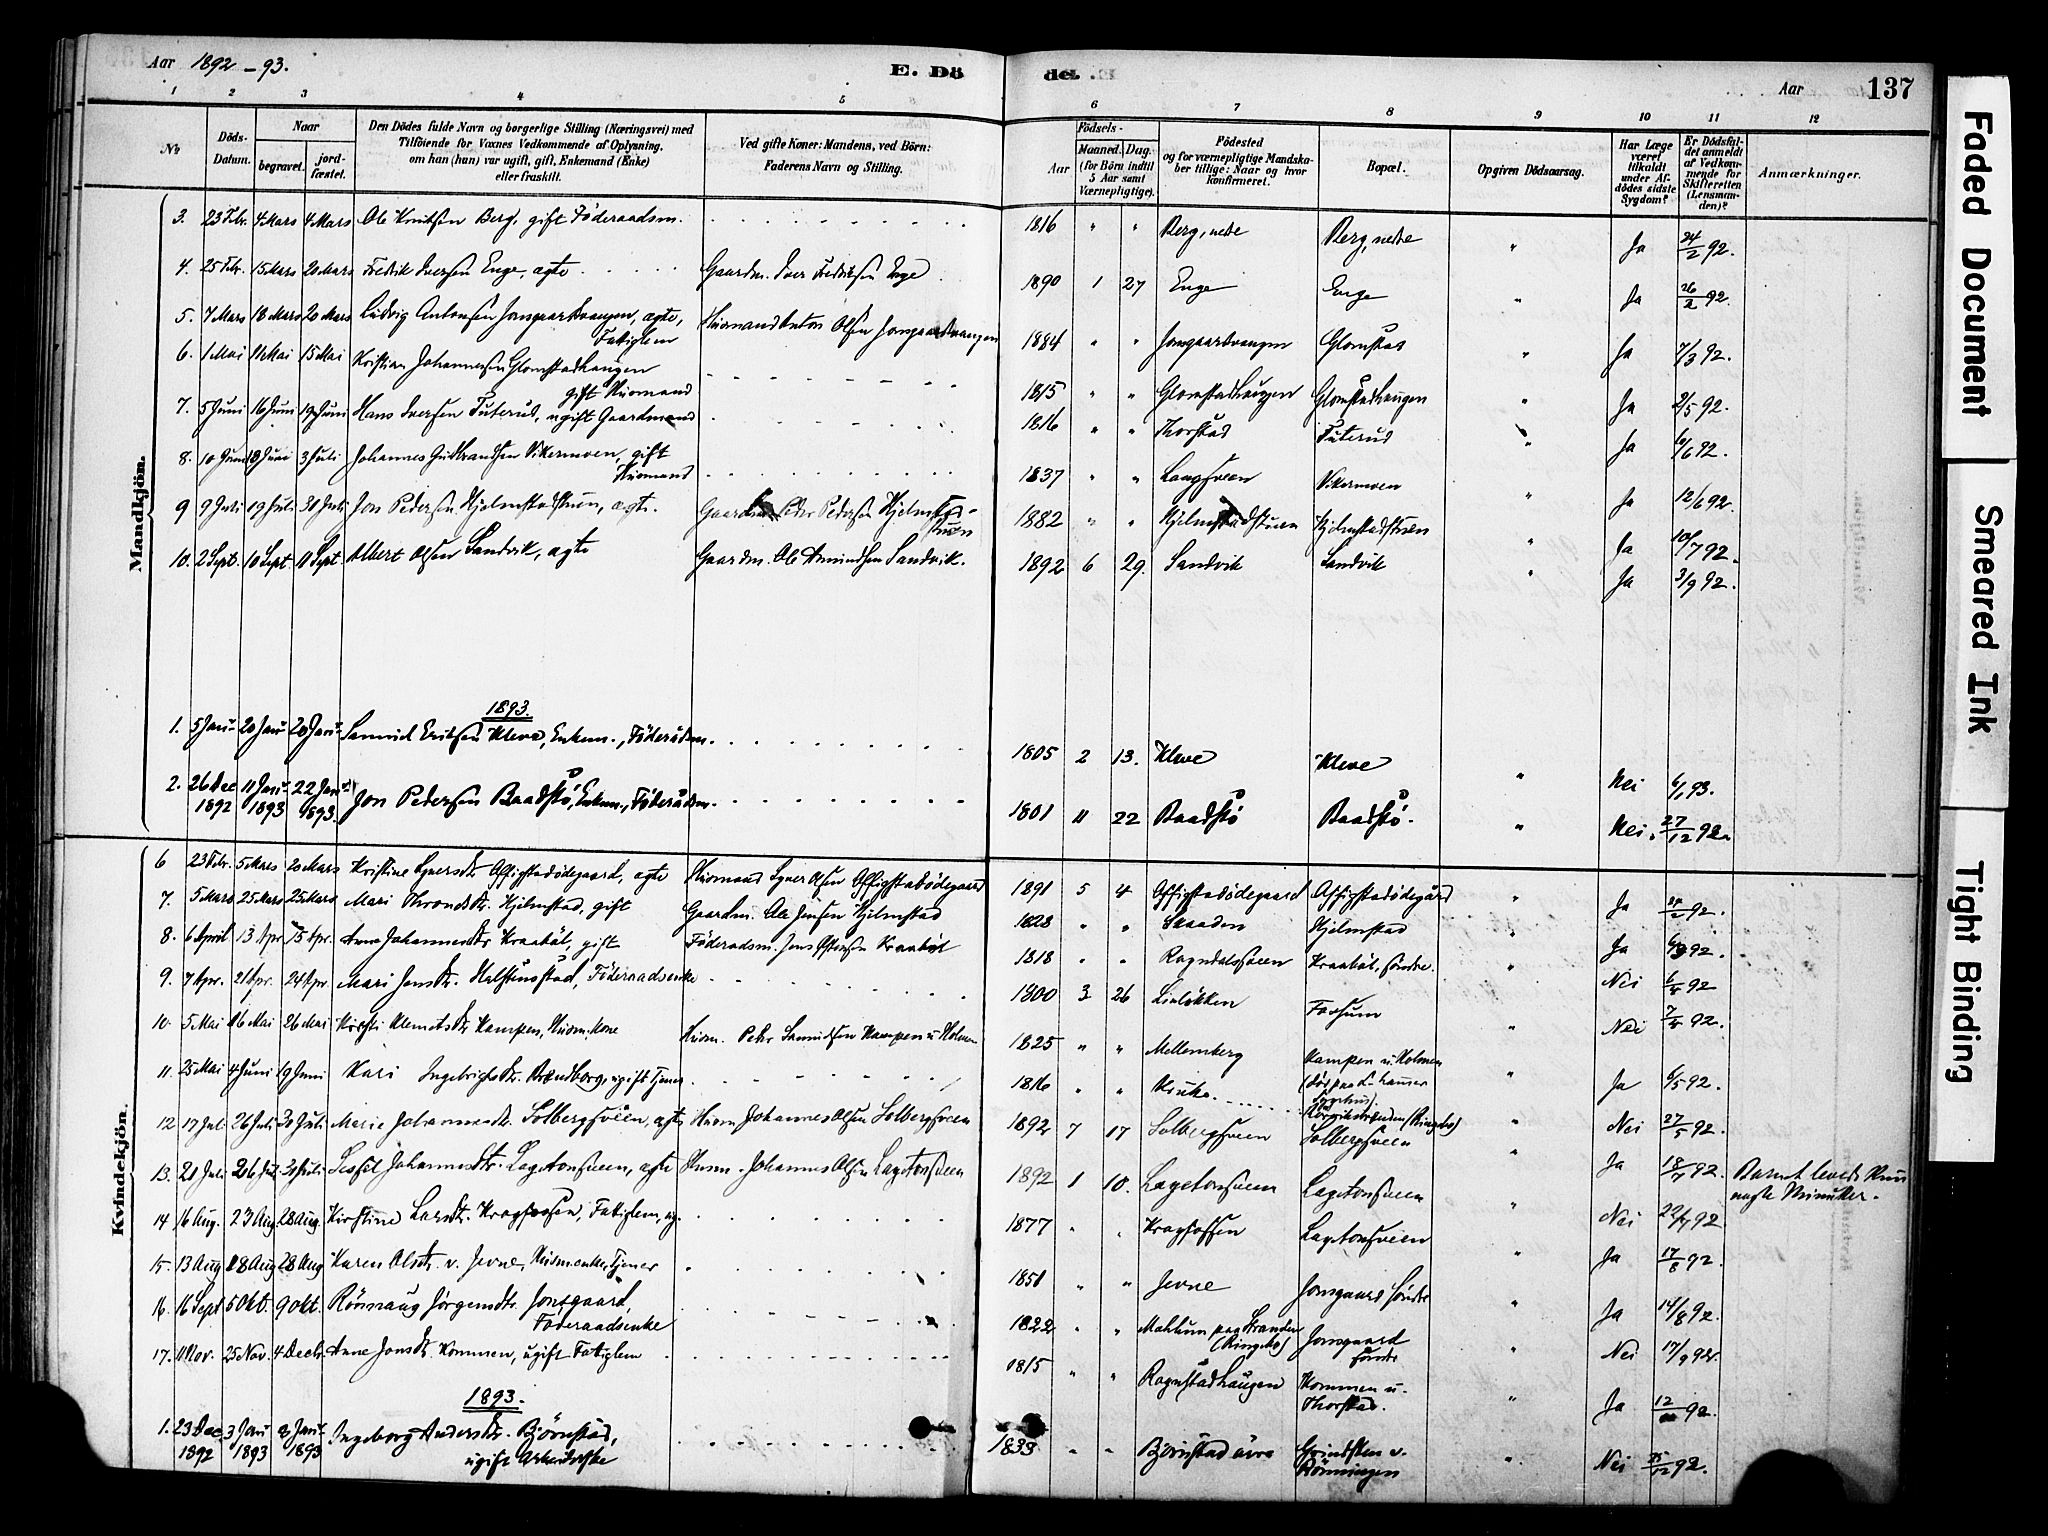 Aar 1892-93.
E. Dö
de. E
Aar
137
1 2 3 4 5 6 7 8 9 10 11 12
No
Döds-Datum.
Naar
begravet.
jord-fæstet.
Den Dödes fulde Navn og borgerlige Stilling (Næringsvei) med
Tilföiende for Voxnes Vedkommende af Oplysning,
om han (hun) var ugift, gift, Enkemand (Enke)
eller fraskilt.
Ved gifte Koner: Mandens, ved Börn:
Faderens Navn og Stilling.
Födsels-
Aar
Maaned. Dag.
(for Börn indtil
5 Aar samt
Værnepligtige).
Födested
og for værnepligtige Mandska-
ber tillige: Naar og hvor
konfirmeret.
Bopæl.
Opgiven Dödsaarsag.
Har Læge
været
tilkaldt
under Af-
dödes sidste
Sygdom?
Er Dödsfal-
det anmeldt
af Vedkom-
mende for
Skifteretten
(Lensman-
den)?
Anmærkninger.
Mandkjön.
3. 23 Febr. 4 Mars 4 Mars Ole Knutsen Berg, gift Föderaadsm. 1816 " " Berg, nedre Berg, nedre " Ja 24/2 92.
4. 25 Febr. 15 Mars 20 Mars Fredrik Iversen Enge, ægte Gaardm. Iver Fredriksen Enge 1890 1 27 Enge Enge " Ja 26/2 92.
5. 7 Mars 18 Mars 20 Mars Ludvig Antonsen Jonsgaardvangen, ægte, Fattiglem Husmand Anton Olsen Jonsgaardvangen 1884 " " Jonsgaardvangen Glomstad " Ja 7/3 92.
6. 1 Mai 11 Mai 15 Mai Kristian Johannessen Glomstadhaugen gift Husmand 1815 " " Glomstadhaugen Glomstadhaugen " Ja 2/5 92.
7. 5 Juni 16 Juni 19 Juni Hans Iversen Futerud, ugift Gaardmand 1816 " " Thorstad Futerud " Ja 6/6 92.
8. 10 Juni 18 Juni 3 Juli Johannes Gulbrandsen Vikermoen, gift Husmand 1837 " " Langsveen Vikermoen " Ja 12/6 92.
9 9 Juli 19 Juli 30 Juli Jon Pedersen Hjelmstadstuen, ægte. Gaardm. Peder Pedersen Hjelmstad-stuen 1882 " " Hjelmstadstuen Hjelmstadstuen " Ja 10/7 92.
10. 2 Sept. 10 Sept 11 Sept. Albert Olsen Sandvik, ægte Gaardm. Ole Amundsen Sandvik. 1892 6 29. Sandvik Sandvik " Ja 3/9 92.
1893.
1. 5 Janu- 20 Janu- 20 Janu- Samuel Eriksen Kleve, Enkem., Föderaadsm. 1805 2 13. Kleve Kleve " Nei 6/1 93.
2. 26 Dec 1892 11 Janu- 1893 22 Janu- 1893. Jon Pedersen Baadstö, Enkem., Föderaadsm. 1801 11 22 Baadstö Baadstö. " Nei. 27/12 92.
Kvindekjön.
6 23 Febr. 5 Mars 20 Mars Kristine Syversdtr. Offigstadödegaard, ægte Husmand Syver Olsen Offigstadödegaard 1891 5 4 Offigstadödegaard Offigstadödegård " Ja 24/2 92.
7. 5 Mars 25 Mars 25 Mars Mari Throndsdtr. Hjelmstad, gift Gaardm. Ole Jensen Hjelmstad 1828 " " Skaaden Hjelmstad " Ja 6/3 92.
8. 6 April 13 Apr 15 Apr. Anne Johannesdtr Kraaböl, gift Föderaadsm. Jens Kraaböl 1818 " " Kraaböl, söndre. " Nei 6/4 92
9. 7 Apr. 21 Apr. 24 Apr. Mari Jonsdtr. Halstensstad, Föderaadsenke 1800 3 26 Linlökken Forsum " Nei 7/4 92.
10. 5 Mai 16 Mai 26 Mai Kirsti Klemetsdtr Kampen, Husm. Kone Husm. Peder Samuelsen Kampen u. Holmen 1825 " " Mellemberg Kampen u. Holmen " Ja 6/5 92.
11. 25 Mai 4 Juni 19 Juni Kari Ingebrigtsdtr. Brandborg, ugift Tjener 1816 " " Kruke " Nei 27/5 92.
12 17 Juli 26 Juli 30 Juli Marie Johannesdtr. Solbergsveen, ægte Husm Johannes Olsen Solbergsveen 1892 7 17 Solbergsveen Solbergsveen " Ja 18/7 92. Barnet levede kun nogle Minutter.
13. 20 Juli 26 Juli 30 Juli Sissel Johannesdtr. Lagetonsveen, ægte Husm. Johannes Olsen Lagetonsveen 1892 1 10. Lagetonsveen Lagetonsveen " Nei 22/7 92
14 16 Aug. 23 Aug 28 Aug. Kirstine Larsdtr. Kragsossen, Fattiglem, ug. 1877 " " Kragsossen Lagetonsveen " Ja 17/8 92.
15. 13 Aug 18 Aug 28 Aug Karen Olsdtr. v. Jevne, Husmenke, Tjener 1851 " " Jevne Jonsgaard söndre " Ja 14/8 92.
16. 16 Sept 5 Okt. 9 Okt. Rönnaug Jörgensdtr. Jonsgaard, Föderaadsenke 1822 " " Mæhlum paa Stranden (Ringebo) Jonsgaard söndre " Nei 17/9 92.
17. 11 Nov. 25 Nov. 4 Decbr. Anne Jonsdtr. Kommen, ugift Fattiglem 1815 " " Rognstadhaugen Kommen u. Thorstad. " Ja 12/11 92.
1893.
1. 23 Dec. 1892 3 Janu 1893 8 Janu. 1893 Ingeborg Andersdtr. Björnstad, ugift Arbeiderske 1833 " " Björnstad övre Grindsten v. Rönningen " Nei 25/12 92.
Faded Document
Smeared Ink
Tight Binding